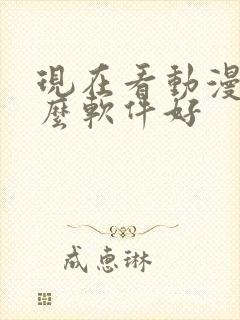 現在看動漫
麼軟件好
成惠琳